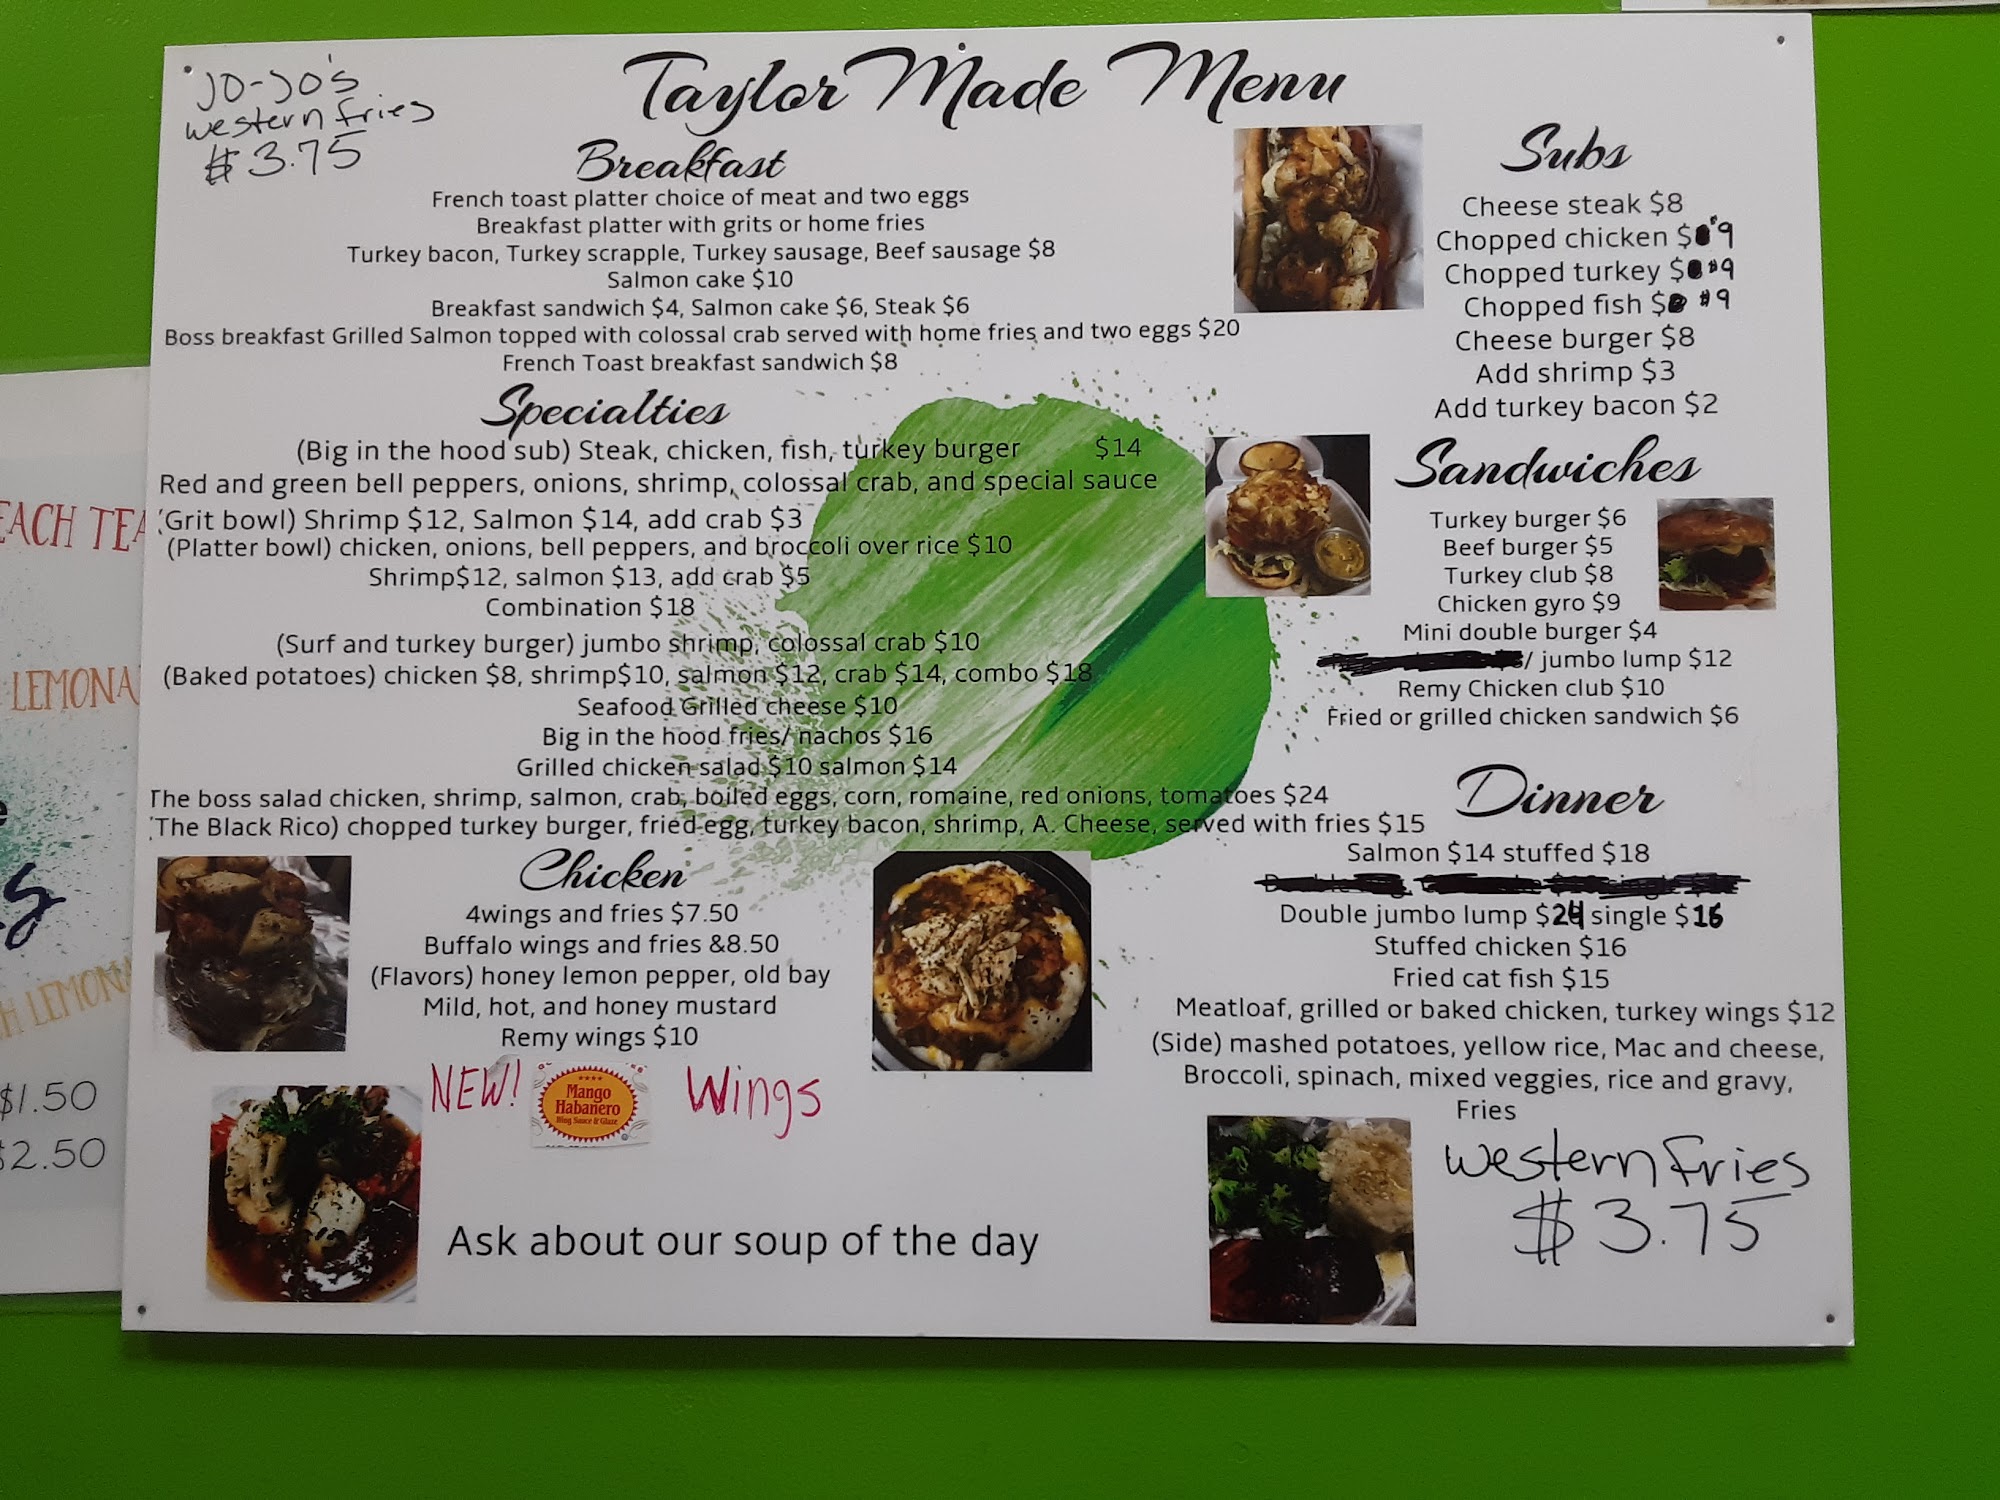 Jo-Jo's
western fries
$3.75
Taylor Made Menu
Breakfast
French toast platter choice of meat and two eggs
Breakfast platter with grits or home fries
Turkey bacon, Turkey scrapple, Turkey sausage, Beef sausage $8
Salmon cake $10
Breakfast sandwich $4, Salmon cake $6, Steak $6
Boss breakfast Grilled Salmon topped with colossal crab served with home fries and two eggs $20
French Toast breakfast sandwich $8
Specialties
(Big in the hood sub) Steak, chicken, fish, turkey burger $14
Red and green bell peppers, onions, shrimp, colossal crab, and special sauce
(Grit bowl) Shrimp $12, Salmon $14, add crab $3
(Platter bowl) chicken, onions, bell peppers, and broccoli over rice $10
Shrimp$12, salmon $13, add crab $5
Combination $18
(Surf and turkey burger) jumbo shrimp, colossal crab $10
(Baked potatoes) chicken $8, shrimp$10, salmon $12, crab $14, combo $18
Seafood Grilled cheese $10
Big in the hood fries/ nachos $16
Grilled chicken salad $10 salmon $14
The boss salad chicken, shrimp, salmon, crab, boiled eggs, corn, romaine, red onions, tomatoes $24
(The Black Rico) chopped turkey burger, fried egg, turkey bacon, shrimp, A. Cheese, served with fries $15
Chicken
4wings and fries $7.50
Buffalo wings and fries &8.50
(Flavors) honey lemon pepper, old bay
Mild, hot, and honey mustard
Remy wings $10
NEW! Wings
Mango
Habanero
Wing Sauce & Glaze
Ask about our soup of the day
Subs
Cheese steak $8
Chopped chicken $ $9
Chopped turkey $ $9
Chopped fish $ $9
Cheese burger $8
Add shrimp $3
Add turkey bacon $2
Sandwiches
Turkey burger $6
Beef burger $5
Turkey club $8
Chicken gyro $9
Mini double burger $4
/ jumbo lump $12
Remy Chicken club $10
Fried or grilled chicken sandwich $6
Dinner
Salmon $14 stuffed $18
Double jumbo lump $24 single $16
Stuffed chicken $16
Fried cat fish $15
Meatloaf, grilled or baked chicken, turkey wings $12
(Side) mashed potatoes, yellow rice, Mac and cheese,
Broccoli, spinach, mixed veggies, rice and gravy,
Fries
western fries
$3.75
EACH TEA
LEMONA
H LEMON
$1.50
$2.50